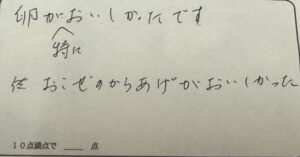 卵がおいしかったです
特に
おこぜのからあげがおいしかった
10点満点で ____ 点